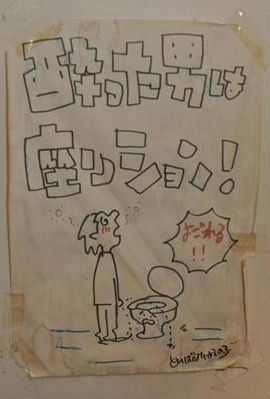 酔った男は
座りション!
よごれる
!!